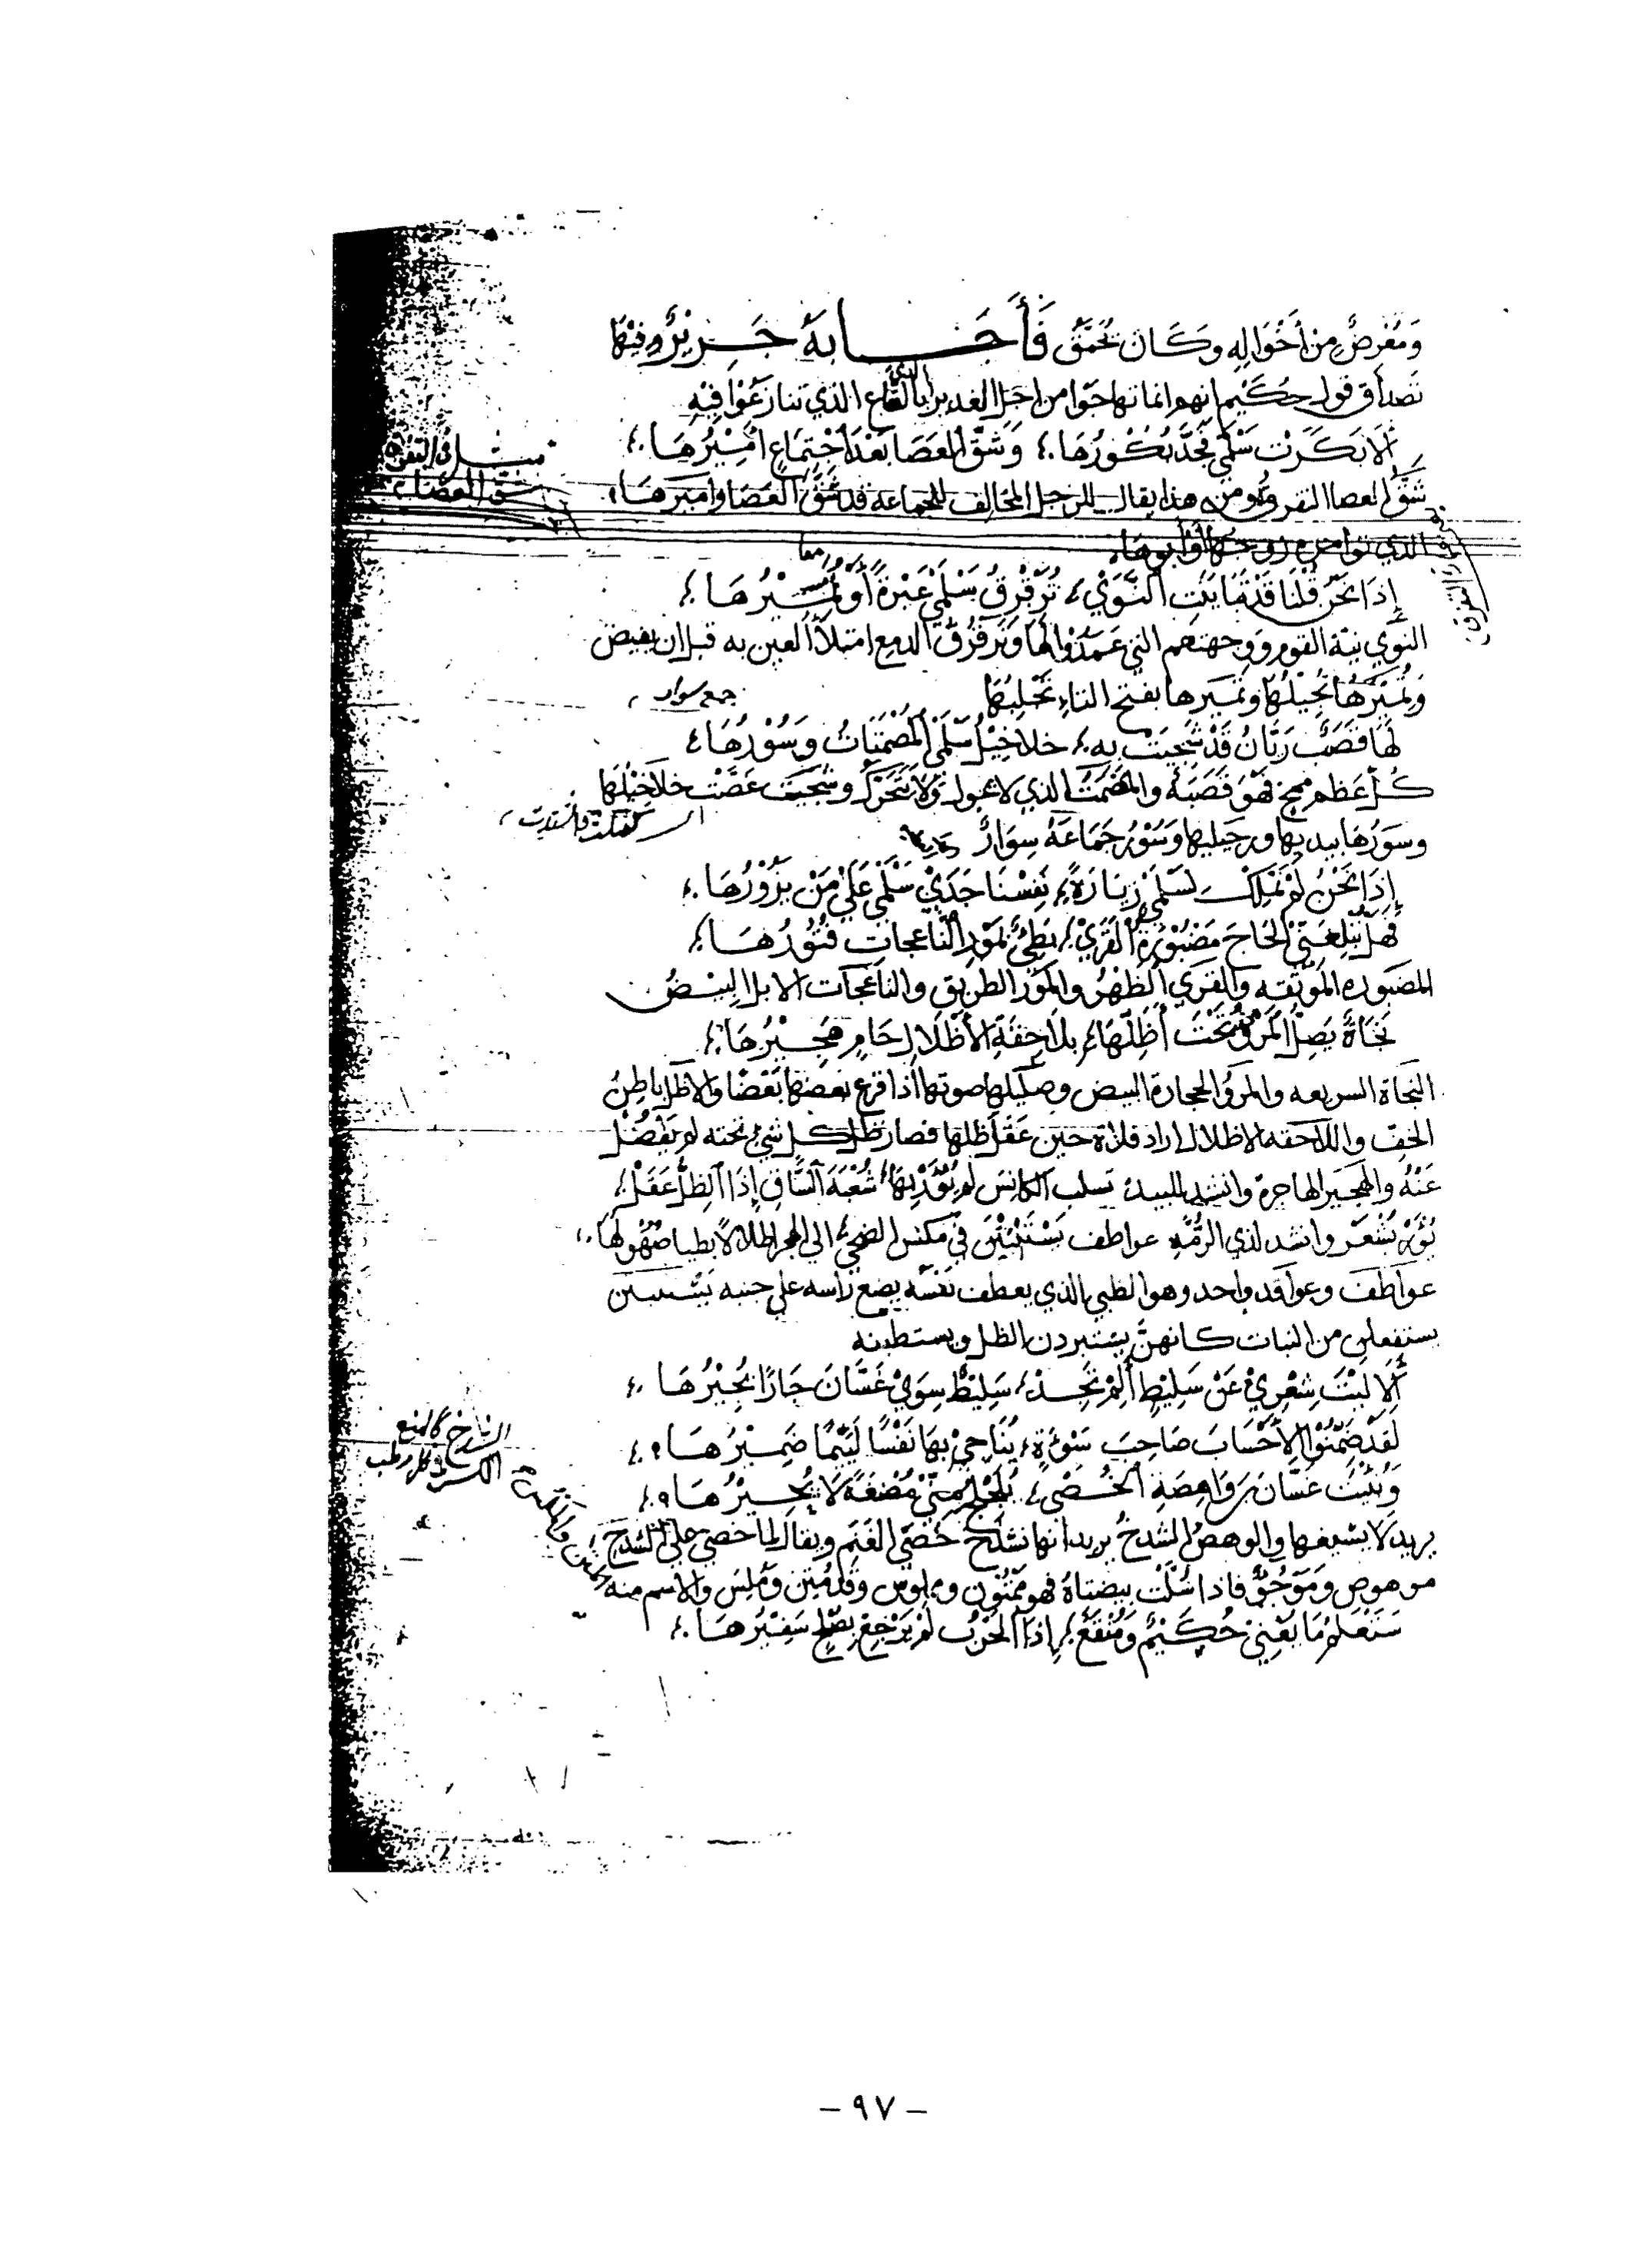 وَمُعْرِضٌ مِنْ أَخْوَالِهِ وَكَانَ يُحَمَّقُ فَأَجَابَهُ جَرِيْرٌ وفِيْهَا
تَصداق قول حُكَيْم انهم انما تهاجَوْا من اجل الغدير الذي بالقاع الذي تنازعُوْا فِيْهِ
أَلَا بَكَرَتْ سَلْمَي فَجَدَّ بُكُوْرُهَا وَشَقَّ العَصَا بَعْدَ اجْتِمَاعٍ أَمِيْرُهَا
شَقُّ العصا التفرق ومن هذا يقال للرجل المخالف للجماعة قد شَقَّ العَصَا وَأَمِيرَهَا
الذي تؤامره زوجُهَا أَوْ أَبُوهَا
إِذَا نَحْنُ قُلْنَا قَدْ تَبَايَنَتِ النَّوَيْ تُرَقْرِقُ سَلْمَيْ عَبْرَةً أَوْ تُمِيْرُهَا معا
النَّوَي نيّة القوم ووجهتهم التي عَمَدُوْا لها وَتَرقرُقُ الدمع امتلأ العين به قبل ان يفيض
وَتُمِيْرُهَا تُجِيْلُهَا وتَمِيرها بفتح التاءِ تَحْلِبُهَا
جمع سوار
لَهَا قَصَبٌ رَيَّانُ قَدْ شَجِيَتْ بِهِ خلاخِيْلُ سَلْمَيْ المُصْمَتَاتُ وَسُوْرُهَا
كُلُّ عَظم ممخ فَهْوَ قَصَبَة والمُصْمَتُ الذي لا يجول وَلَا يَتَحَرَّك وشَجِيَتْ غَصَّتْ خلَاخِيْلُهَا
وسُوْرُهَا بيديها ورجليها وَسُوْرُ جَمَاعَةُ سِوَارٌ
إِذَا نَحْنُ لَمْ نَمْلِكْ لسَلْمَيْ زِيَارَةً نَفِسْنَا جَدَيْ سَلْمَيْ عَلَيْ مَنْ يَزُوْرُهَا
فَهَلْ تُبْلِغَنِّيْ الحَاجَ مَضْبُوْرَةُ القَرَيْ بَطِيْءٌ بمَوْرِ النَّاعِجَاتِ فُتُوْرُهَا
المضبوره الموثقه والقَرَي الظَهْرُ والمَوْرُ الطريق والناعجات الابل البِيْضُ
نَجَاةٌ يَصِلُّ المَرْوُ تَحْتَ أَظَلِّهَا بلَاحِقَةِ الأَظْلَالِ حَامٍ هَجِيْرُهَا
النجَاة السريعه والمرو الحجارة البيض وصليلها صوتها اذا قرع بعضها بَعْضًا والاظل باطِنُ
الخفّ واللاحقه الاظلال اراد فلاة حين عَقَل ظلها فصار ظل كل شيء تحته لم يَفْضُل
عَنْهُ والهجير الهاجرة وانشد للبيد تسلب الكانِسَ لم يُوْءَرْ بِهَا شُعْبَةَ السَّاقِ إِذَا الظِلُّ عَقَلْ
يُؤرْ يَشْعَرْ وانشد لذي الرُّمَّة عواطف يَسْتَثْبِتْنَ في مكنس الضحي الي الهجر اظلالاً بطيا ضُهُولُهَا
عواطف وعواقد واحد وهو الظبي الذي يعطف نفسَه يضع رأسه علي جنبه يَثْبتن
يستفعلن من النبات كانهنَّ يستبردن الظل ويستطبنه
أَلَا لَيْتَ شِعْرِيْ عَنْ سَلِيْطٍ أَلَمْ تَجِدْ سَلِيْطٌ سِوَيْ غَسَّانَ جَارًا يُجِيْرُهَا
لَقَدْ ضَمَّنُوْا الأَحْسَابَ صَاحِبَ سَوْءَةٍ يُنَاجِيْ بِهَا نَفْسًا لَئِيْمًا ضَمِيْرُهَا
وَنُبِّئْتُ غَسَّانَ بنَ وَاهِصَةِ الخُصَيْ يُلَجْلِجُ مِنِّيْ مُضْغَةً لَا يُحِيْرُهَا
يريد لا يسيغها والوهص الشدخُ يريد انها تشدَخُ خُصَيّ الغَنَم ويقال لما خصي علي الشدخ
موهوص وَمَوْجُوٌّ فاذا سُلَّتْ بيضتاهُ فهو مَمْتُون ومملوس وقد مُتِن وَمُلِسَ والاسم منه
سَتَعْلَمُ مَا يُغْنِيْ حُكَيْمٌ وَمُنْقَعٌ إِذَا الحَرْبُ لَمْ يَرْجِعْ بِصُلْحٍ سَفِيْرُهَا
شق العصاء
الشدخ كالمنع
الكسر في كل رطب
- ٩٧ -